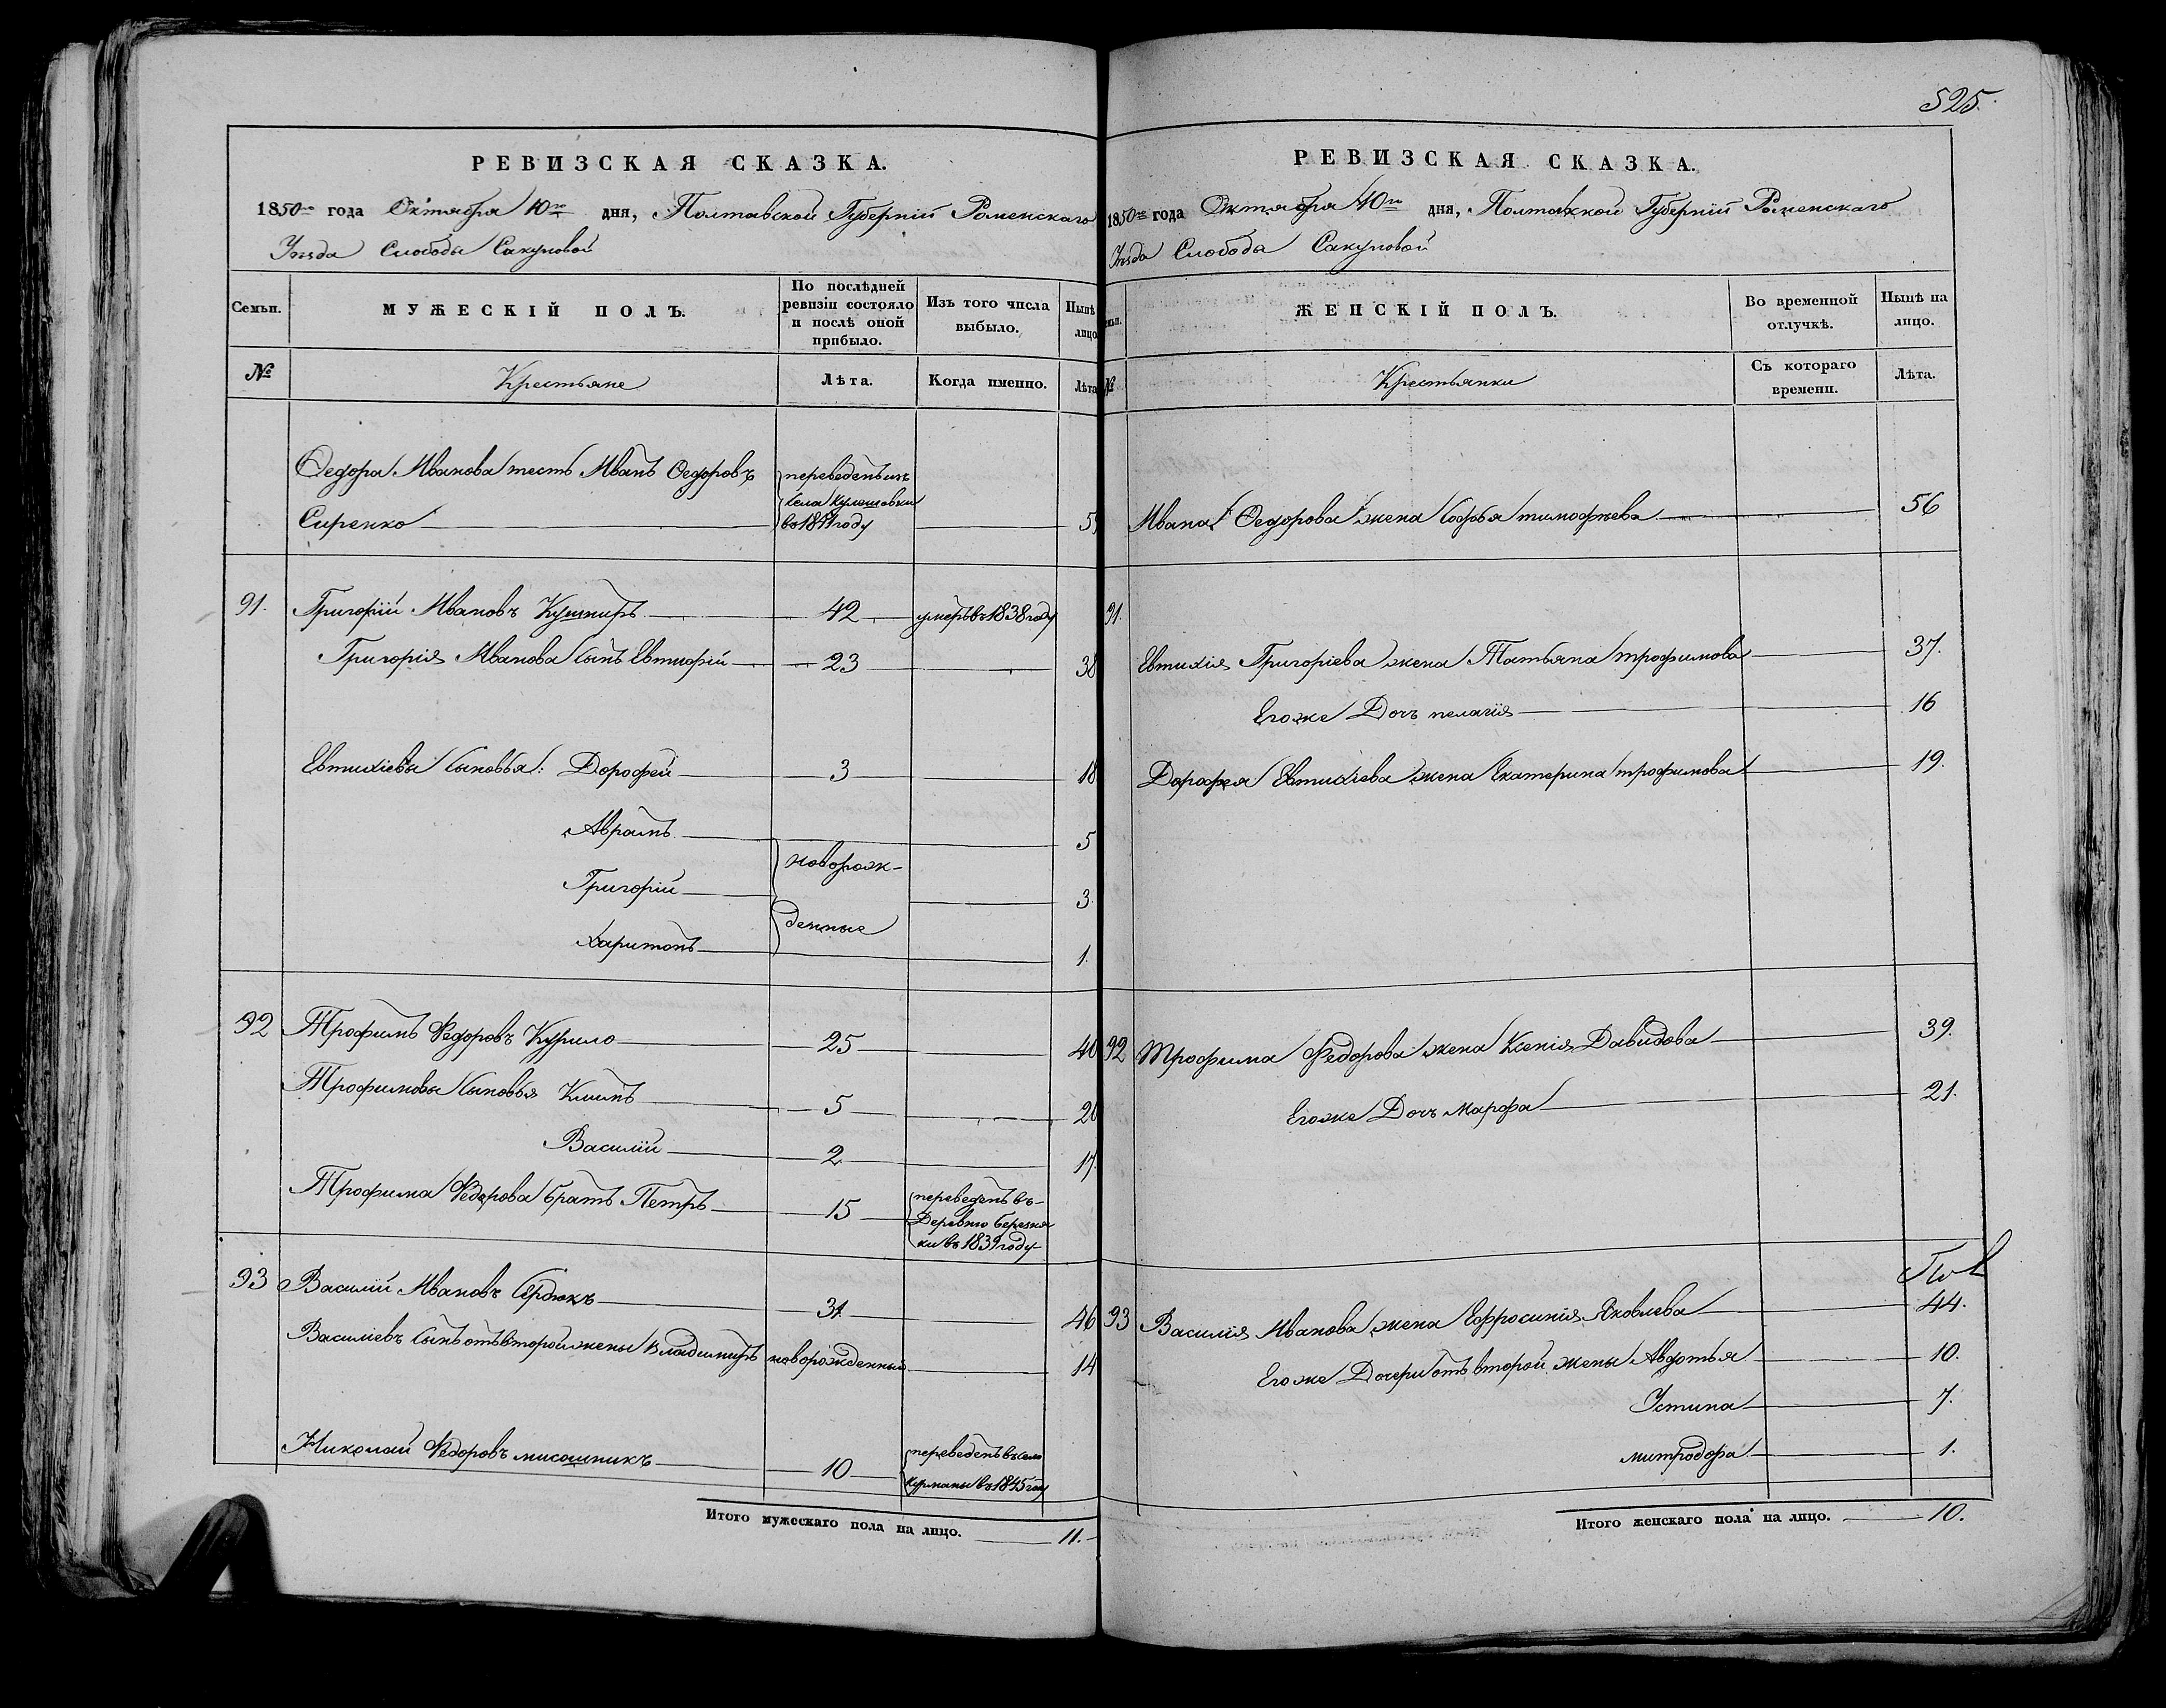 РЕВИЗСКАЯ СКАЗКА.
1850го года Октября 10го дня, Полтавской Губерніи Роменскаго
Уѣзда Слободы Сакуновой
Семьи.
МУЖЕСКІЙ ПОЛЪ.
По послѣдней ревизіи состояло и послѣ оной прибыло.
Изъ того числа выбыло.
Нынѣ лицо
№
Крестьяне
Лѣта.
Когда именно.
Лѣта
Ѳедора Иванова тесть Иванъ Ѳедоровъ
Сиренко
переведенъ изъ
села
во году
91. Григорій Ивановъ Кушниръ 42 умеръ въ 1838 году
Григорія Иванова сынъ Евтифій 23 38
Евтихіевы сыновья: Дорофей 3 18
Абрамъ 5
новорож-
Григорій 3
денные
Харитонъ 1.
92 Трофимъ Федоровъ Курило 25 40
Трофимовы сыновья Климъ 5 20
Василій 2 17.
Трофима Федорова братъ Петръ 15
переведенъ въ
Деревню Березня
ки въ 1839 году
93 Василій Ивановъ Сердюкъ 31 46
Василіевъ сынъ отъ второй жены Владимиръ новорожденный 14
Николай Федоровъ 10
переведенъ въ село
Курманы въ 1845 году
Итого мужескаго пола на лицо. 11.
525.
РЕВИЗСКАЯ СКАЗКА.
1850го года Октября 10го дня, Полтавской Губерніи Роменскаго
Уѣзда Слобода Сакуновой
ЖЕНСКІЙ ПОЛЪ.
Во временной отлучкѣ.
Нынѣ на лицо.
№
Крестьянки
Съ котораго времени.
Лѣта.
Ивана Ѳедорова жена Софья тимофѣева 56
91.
Евтихія Григоріева жена Татьяна трофимова 37.
Егоже Дочь пелагія 16
Дорофея Евтихіева жена Екатерина трофимова 19.
92 Трофима Федорова жена Ксенія Давидова 39.
Егоже Дочь марфа 21.
93 Василія Иванова жена Ефросинія Яковлева 44.
Егоже Дочери отъ второй жены Авдотья 10.
Устина 7.
митродора 1.
Итого женскаго пола на лицо. 10.